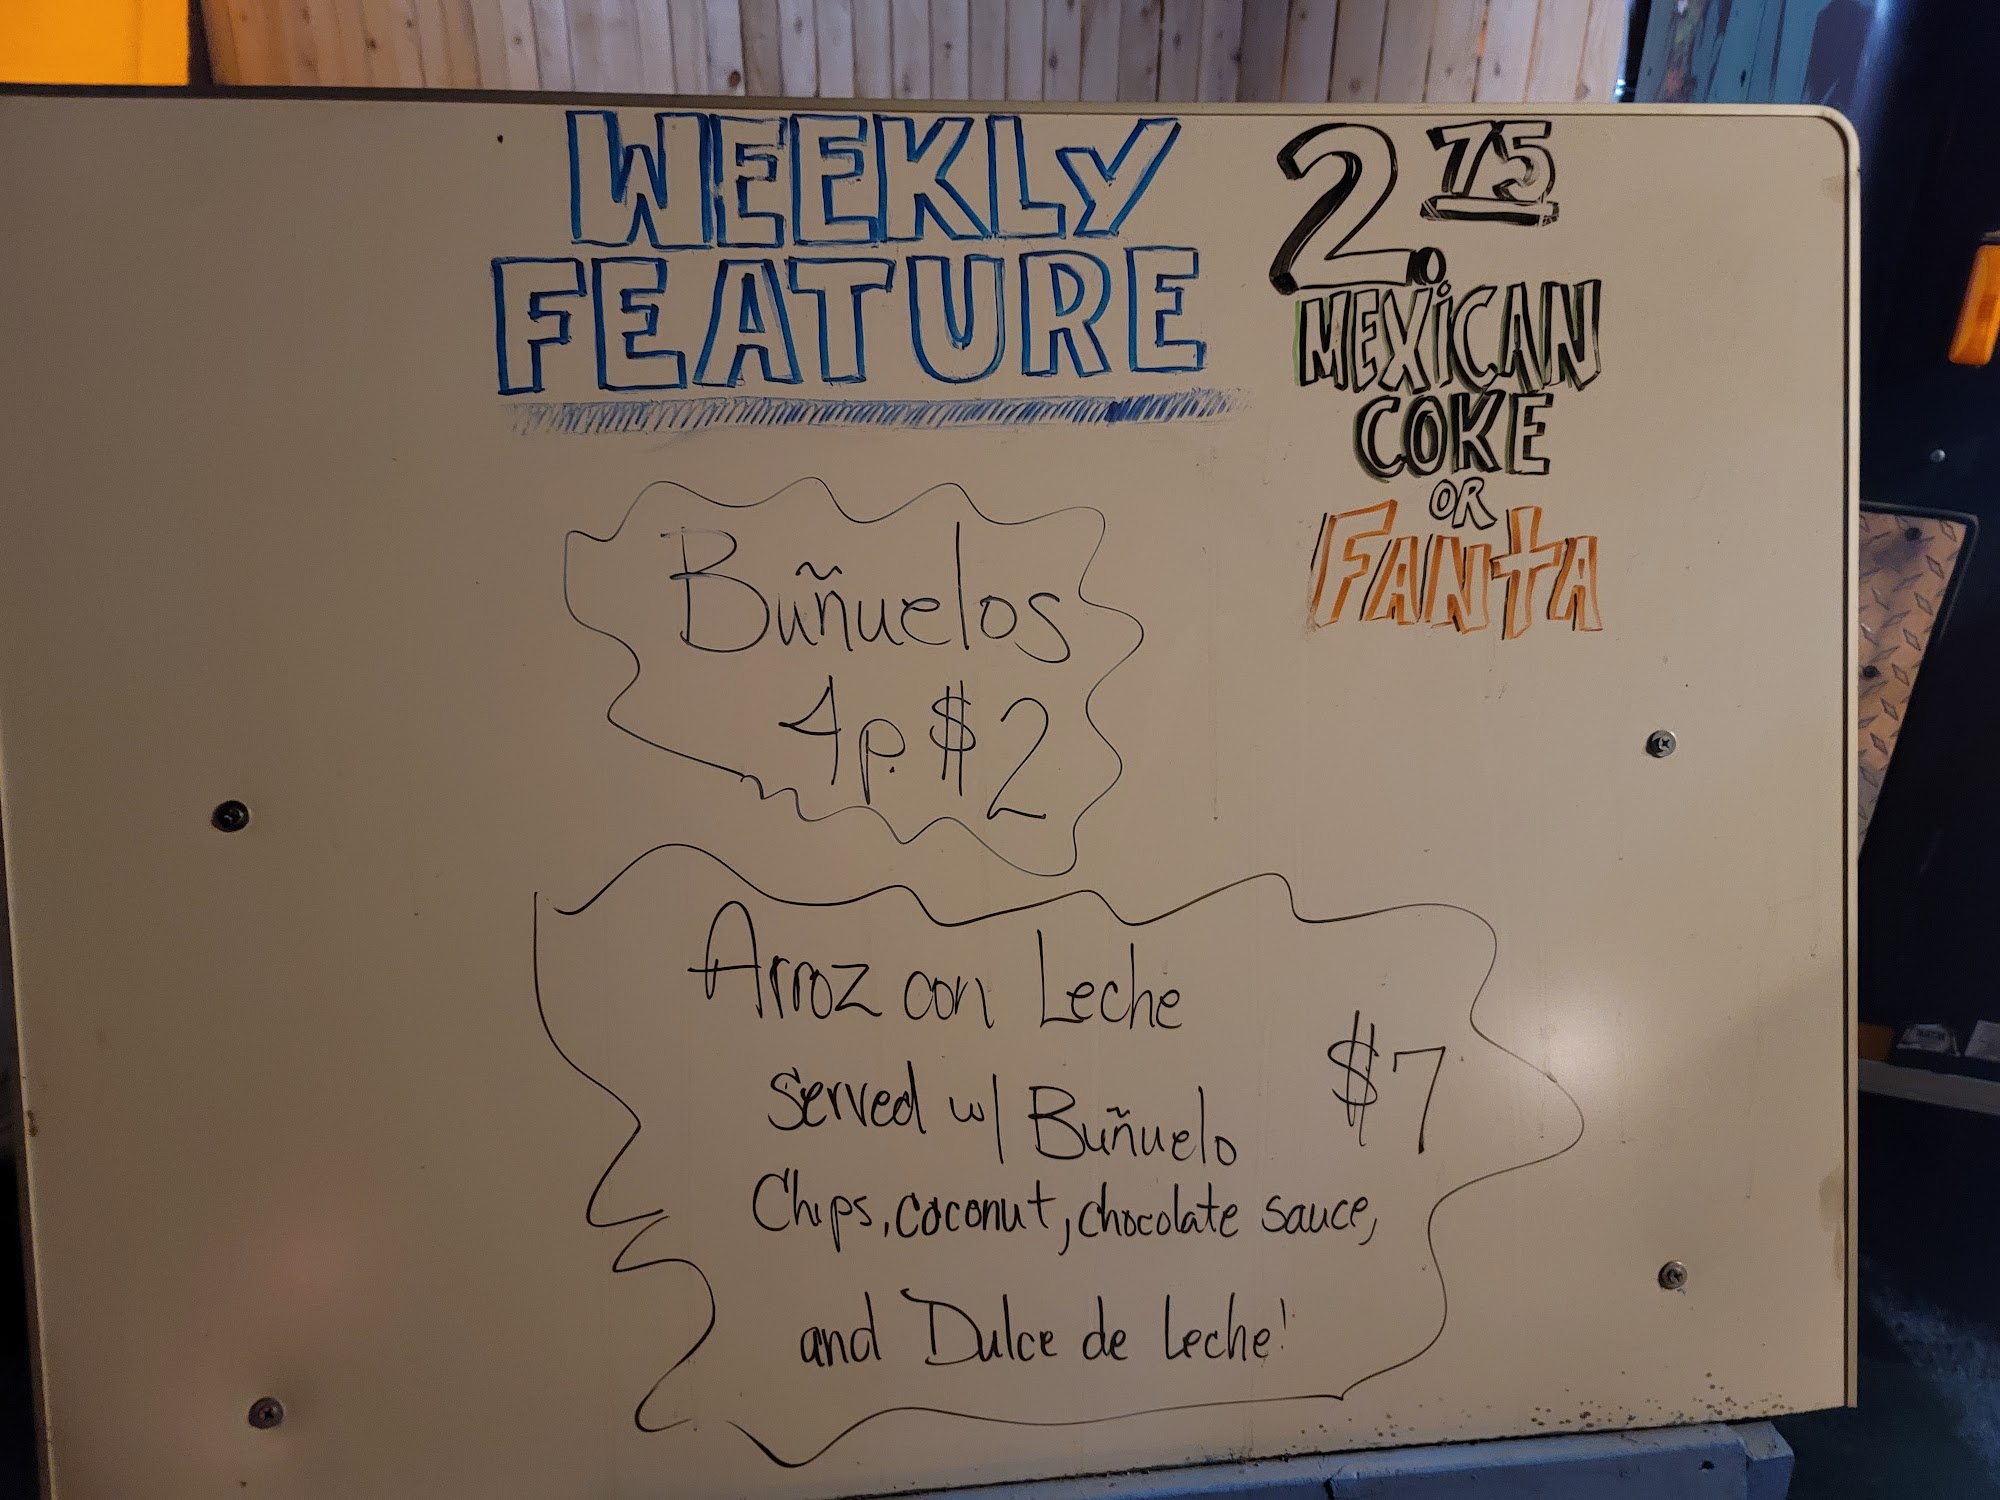 WEEKLY
FEATURE
2.75
MEXiCAN
COKE
OR
FANTA
Buñuelos
4p. $2
Arroz con Leche
served w/ Buñuelo
$7
Chips, coconut, chocolate sauce,
and Dulce de Leche!